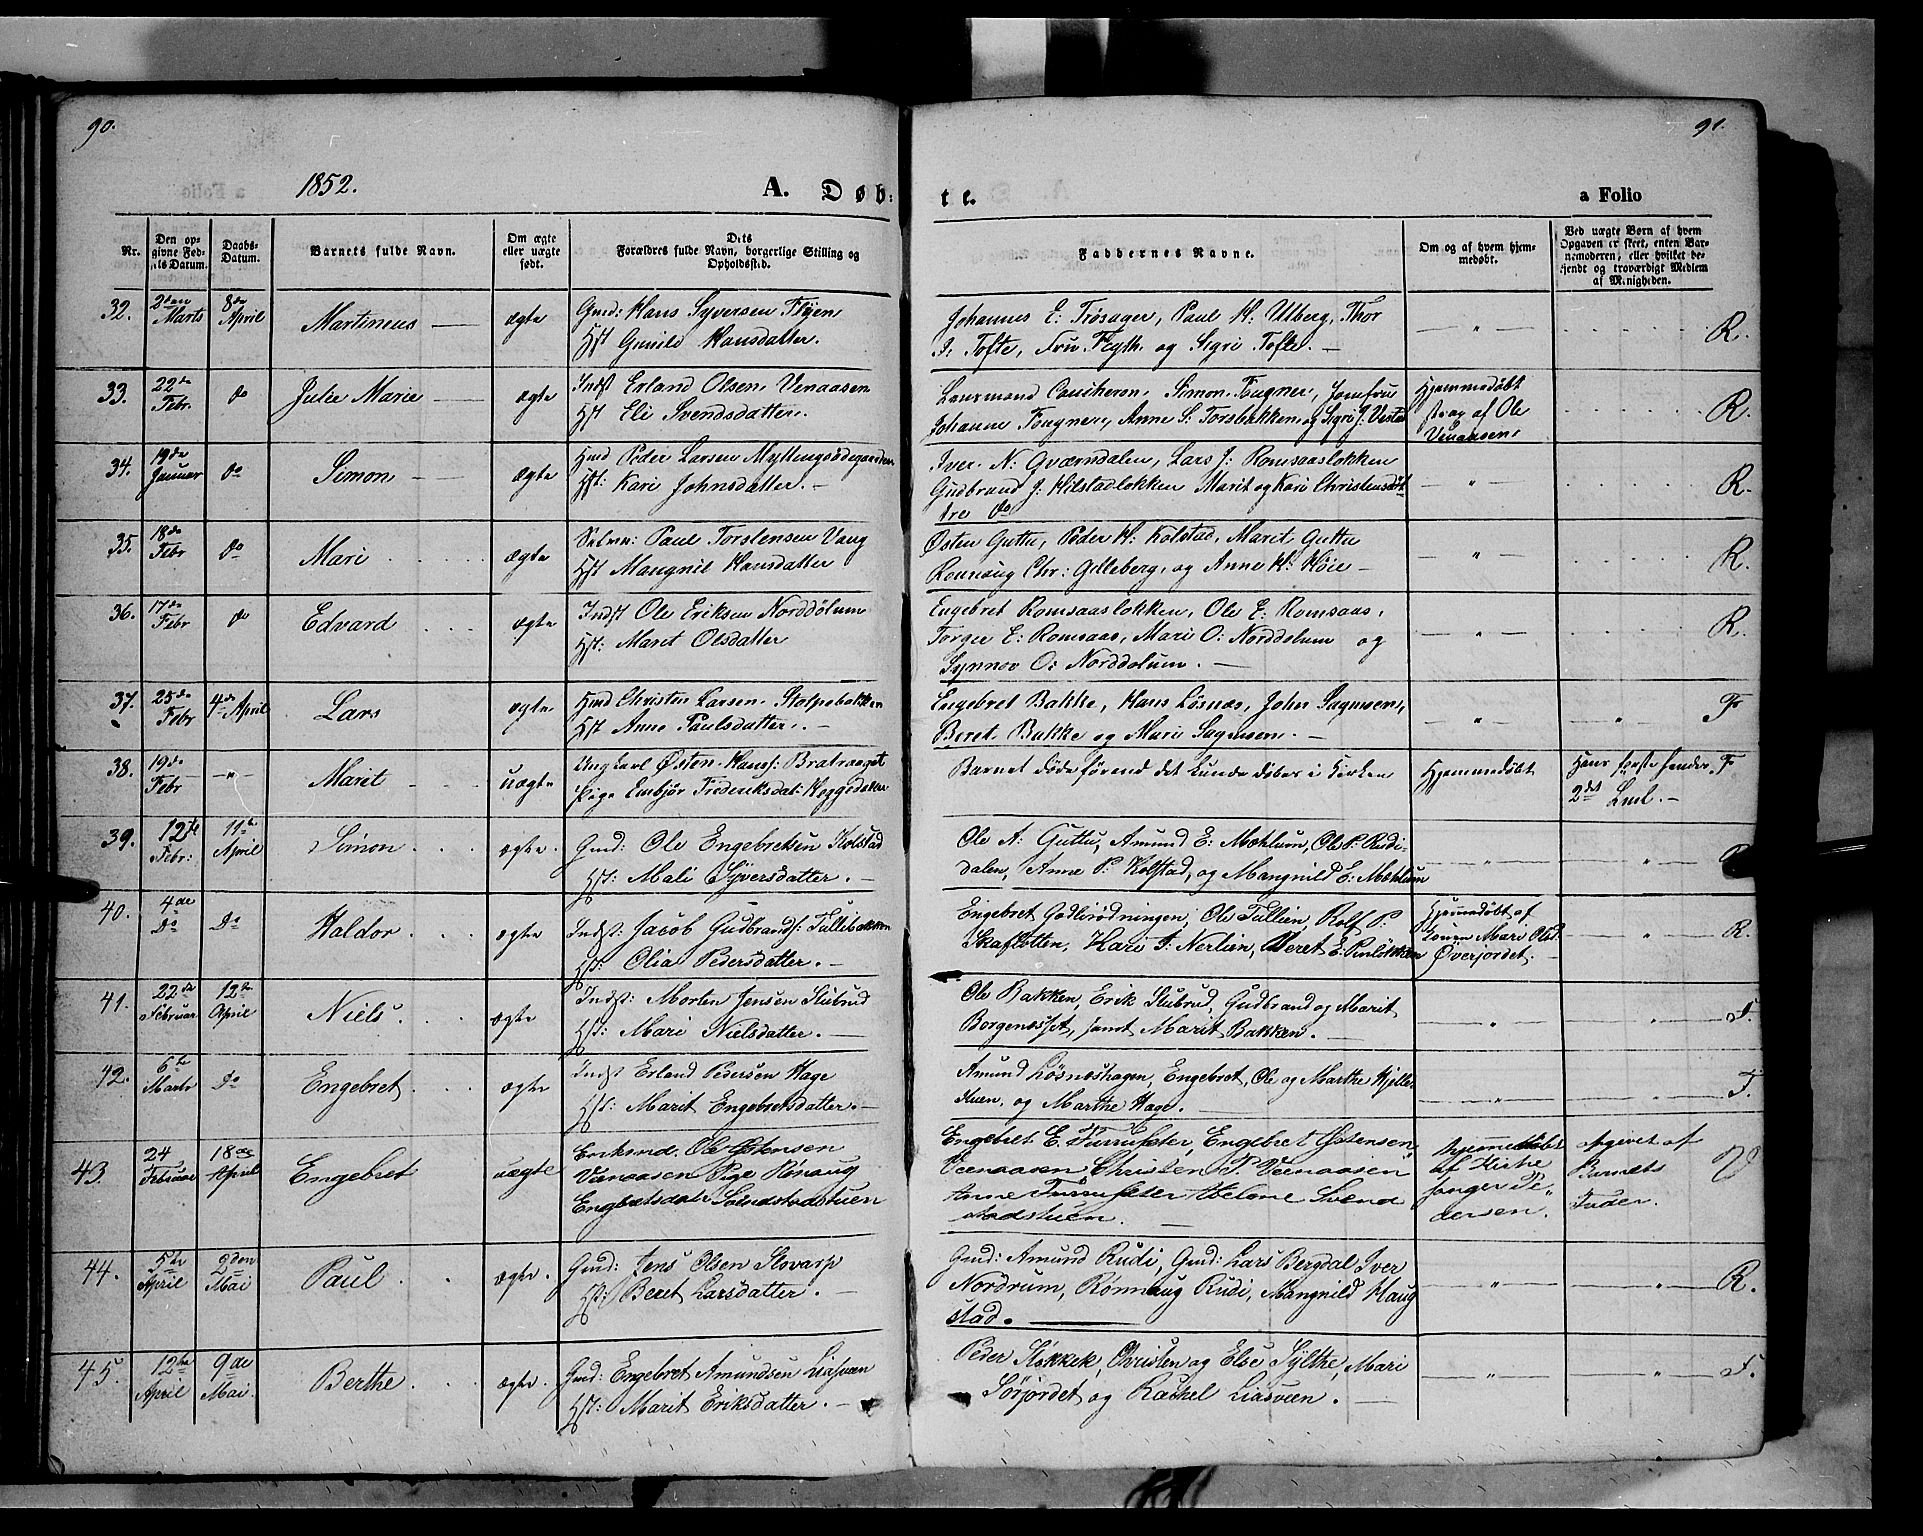 90.
91.
1852.
A. Døb-
te.
a Folio
Nr.
Den op-
givne Fød-
sels Datum.
Daabs-
Datum.
Barnets fulde Navn.
Om ægte
eller uægte
født.
Dets
Forældres fulde Navn, borgerlige Stilling og
Opholdssted.
Faddernes Navne.
Om og af hvem hjem-
medøbt.
Ved uægte Børn af hvem
Opgaven er skeet, enten Bar-
nemoderen, eller hvilket be-
kjendt og troværdigt Medlem
af Menigheden.
32. 2den Marts 8de April Martinus — ægte
Gmd: Hans Syversen Flyen
Hst Gunild Hansdatter.
Johannes E: Trøsager, Paul H: Ulberg, Thor
I. Tofte, Fru Fegth. og Sigri Tofte. —
— " — R.
33. 22de Febr. do Julie Marie — ægte
Indst Erland Olsen Venaasen
Hst Eli Svendsdatter.
Lensmand Simon Fougner, Jomfru
Johanne Fougner, Anne S: Torsbakken og Sigri J:
Hjemmedøbt
strax af Ole
Venaasen,
R
34. 19de Januar do Simon — ægte
Hmd Peder Larsen Myllingsødegaarden
Hst: Kari Johnsdatter. —
Iver N: Gværndalen, Lars J: Romsaasløkken
Gudbrand J: Kilstadløkken Marit og Kari Christensdøt
tre do
— " — R.
35. 18de Febr do Mari ægte
Paul Torstensen Vang
Hst Mangnil Hansdatter
Østen Guttu, Peder H: Kolstad, Marit Guttu
Rønnaug Chr: Gilleberg, og Anne H: Høie —
" R.
36. 17de Febr do Edvard ægte
Indst Ole Eriksen Norddølum
Hst: Marit Olsdatter
Engebret Romsaasløkken, Ole E: Romsaas,
Torger E: Romsaas, Mari O: Norddolum og
Synnøv O: Norddolum. —
— " — R.
37. 25de Febr 4de April Lars ægte
Hmd Christen Larsen Stolpebakken
Hst Anne Paulsdatter. —
Engebret Bakke, Hans Løsnæs, John Sagmoen,
Beret Bakke og Mari Sagmoen. —
— " — " F
38. 19de Febr — " — Marit uægte
Ungkarl Østen Hans: Bratvæget
Pige Embjør Frederiksdat: Heggedalen
Barnet døde førend det kunde døbes i Kirken
Hjemmedøbt
Hans første hendes
2det Leml. —
F
39. 12te Febr: 11te April Simon ægte.
Gmd: Ole Engebretsen Kolstad
Hst: Mali Syversdatter. —
Ole A: Guttu, Amund E: Mæhlum, Ole P: Rudi-
dalen, Anne P: Kolstad, og Mangnild E: Mæhlum
" " R
40. 4de Do Do Haldor ægte
Indst: Jacob Gudbrands: Tullibakken
Hst: Olia Pedersdatter. —
Engebret Godlirødningen, Ole Tullien, Rolf P:
Skafløtten, Kari T: Nerlien, Beret E: Pinløkken
Hjemmedøbt af
Konen Mari Olsd.
Øverjordet. —
" R.
41. 22de Februar 12te April Niels ægte
Indst: Morten Jensen Stubrud
Hst: Mari Nielsdatter. —
Ole Bakken, Erik Stubrud, Gudbrand og Marit
Borgenesset, samt Marit Bakken. —
" " F.
42. 6te Marts Do Engebret ægte
Indst Erland Pedersen Hage
Hst: Marit Engebretsdatter. —
Amund Løsneshagen, Engebret, Ole og Marthe Kjelle
stuen, og Marthe Hage. —
" " F.
43. 24 Februar 18de April Engebret uægte
Enkmd. Ole Østensen
Venaasen Pige Rønaug
Engbetsdatr
Engebret E. Furruseter, Engebret Østensen
Veenaasen Christen P. Veenaasen
Anne Furruseter Abelone Svend
stadstuen. —
hjemmedøbt
af Kirke
sanger Pe-
dersen.
opgivet af
Barnets
Fader.
44. 5te April 2den Mai Paul ægte.
Gmd: Jens Olsen Slovarp
Hst: Beret Larsdatter. —
Gmd: Amund Rudi, Gmd: Lars Bergdal Iver
Nordrum, Rønnaug Rudi, Mangnild Haug
stad. —
" " R.
45. 12te April 9de Mai. Berthe ægte.
Gmd: Engebret Amundsen Liasveen
Hst: Marit Eriksdatter. —
Peder Stokkek, Christen og Else Sylthe, Mari
Sørjordet og Rachel Liasveen. —
" " F.